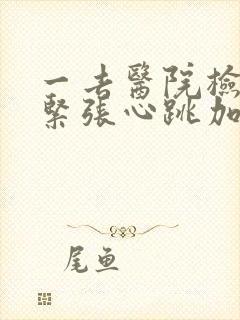 一去醫院檢
緊張心跳加
尾鱼